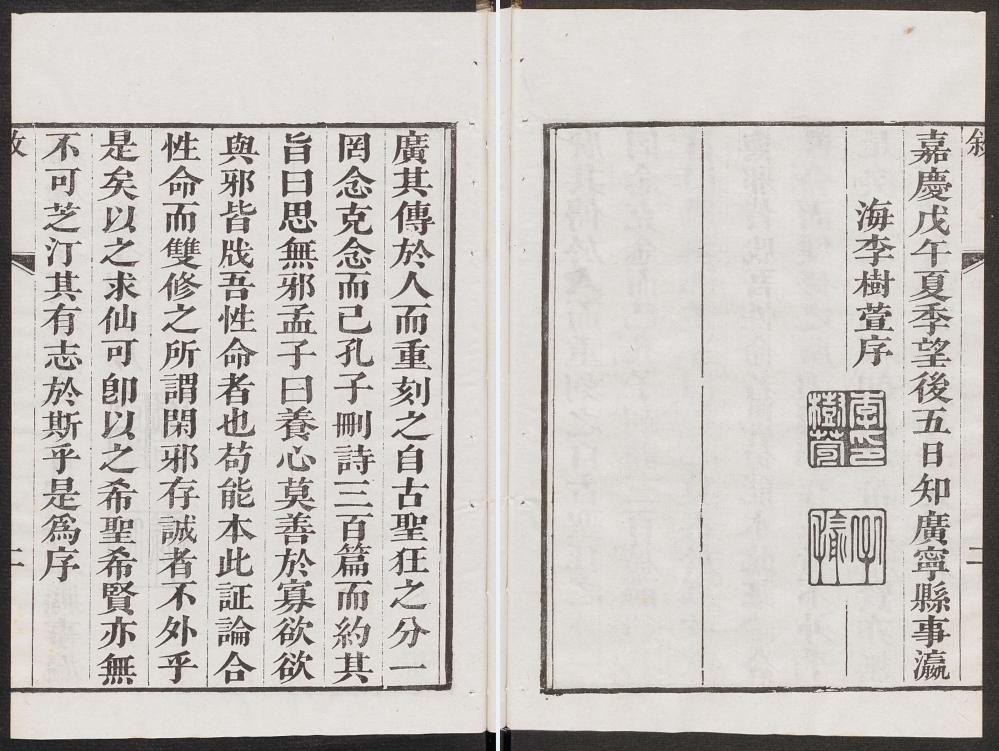 廣其傳於人而重刻之自古聖狂之分一
罔念克念而已孔子刪詩三百篇而約其
旨曰思無邪孟子曰養心莫善於寡欲欲
與邪皆戕吾性命者也苟能本此証論合
性命而雙修之所謂閑邪存誠者不外乎
是矣以之求仙可卽以之希聖希賢亦無
不可芝汀其有志於斯乎是爲序
二
嘉慶戊午夏季望後五日知廣寧縣事瀛
海李樹萱序
李印樹萱